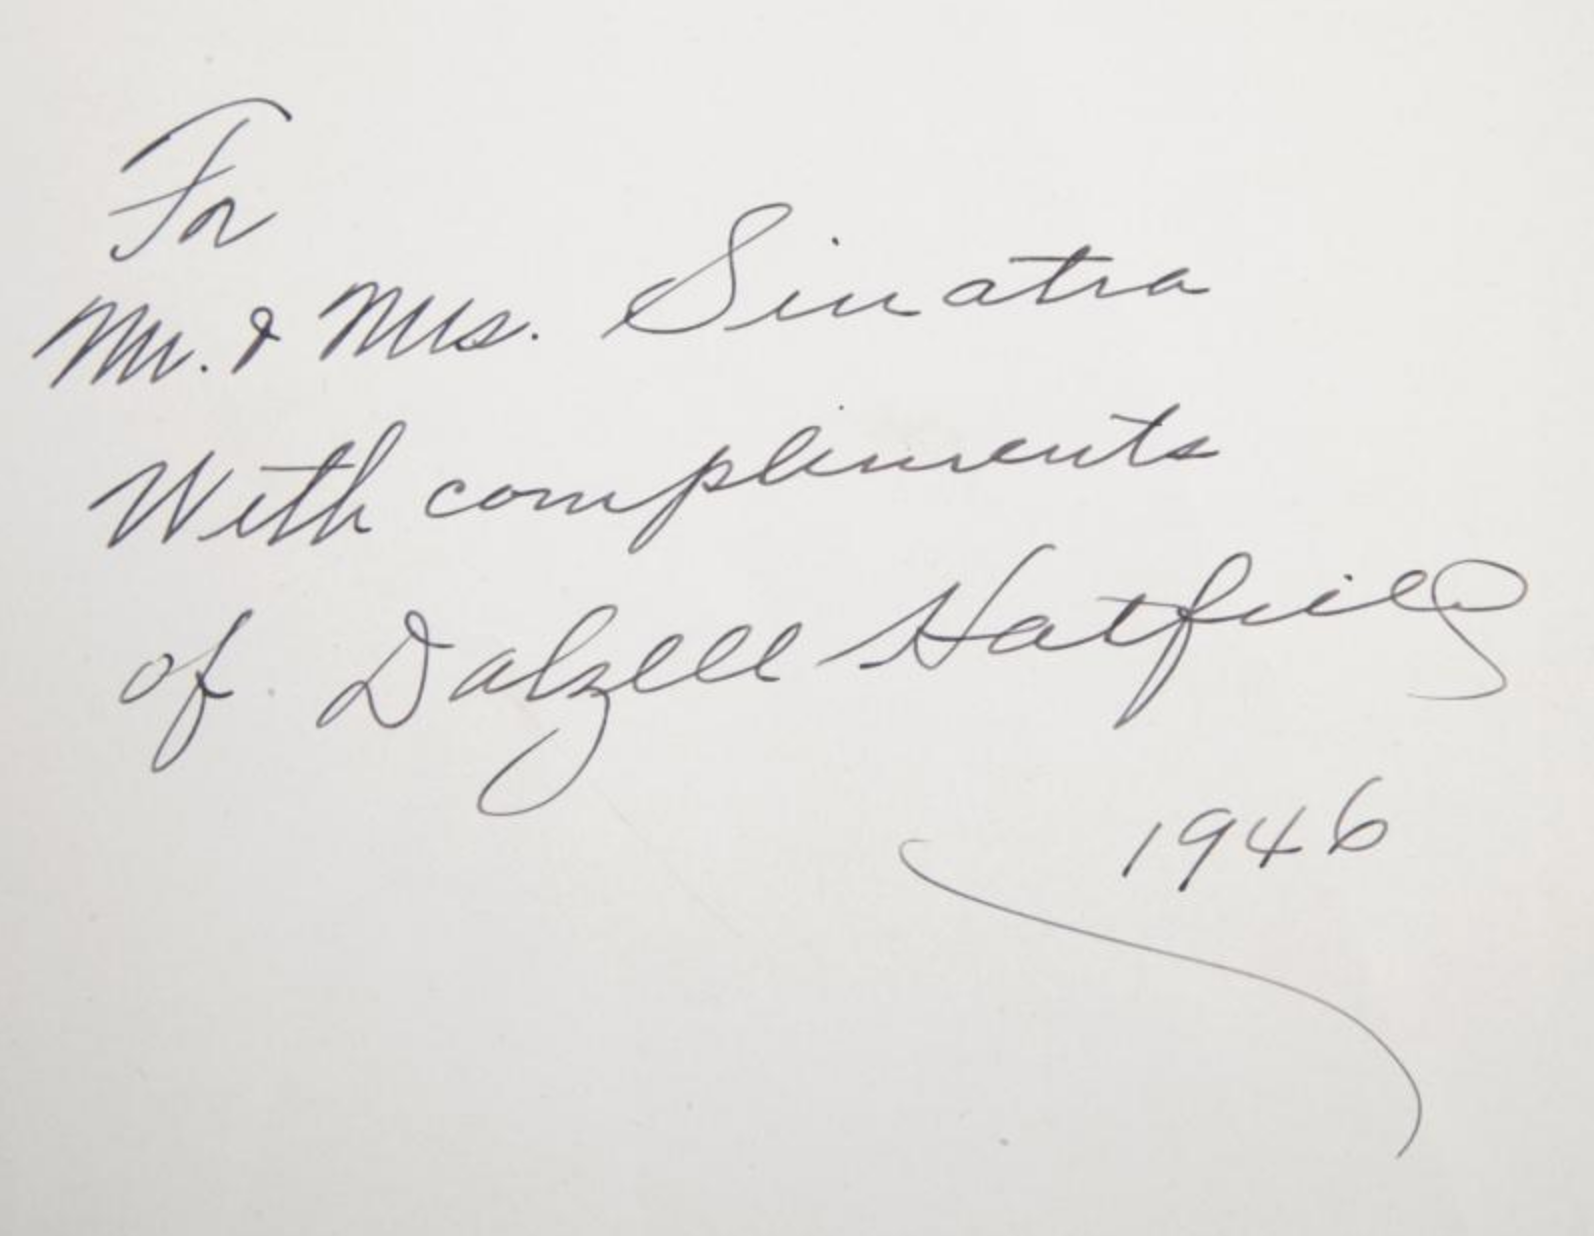 For
Mr. & Mrs. Sinatra
With compliments
of Dalzell Hatfield
1946